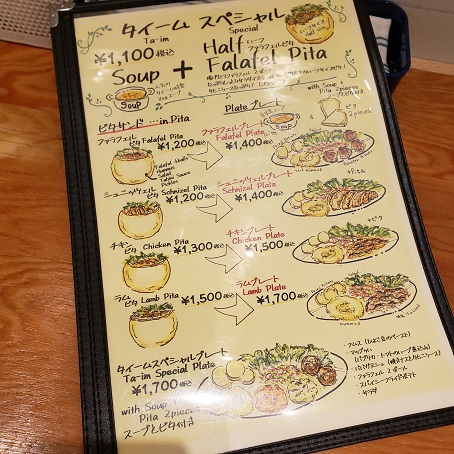 タイーム スペシャル
Ta-im Special
¥1,100税込
Half ハーフ ファラフェルピタ
Soup + Falafel Pita
ハーフサイズ
Soup
ピタサンド …in Pita
Plate プレート
with Soup +
Pita 2pieces
Soup
ピタ
2pieces
ファラフェル ピタ Falafel Pita
¥1,200税込
ファラフェルプレート
Falafel Plate
¥1,400税込
Falafel 3balls
Hummus
Salad
Tahini Sauce
Pickles
シュニッツェル ピタ Schnizel Pita
¥1,200税込
シュニッツェルプレート
Schnizel Plate
¥1,400税込
+Pita
チキン ピタ Chicken Pita
¥1,300税込
チキンプレート
Chicken Plate
¥1,500税込
+ピタ
ラム ピタ Lamb Pita
¥1,500税込
ラムプレート
Lamb Plate
¥1,700税込
Hummus
タイームスペシャルプレート
Ta-im Special Plate
¥1,700税込
with Soup +
Pita 2pieces
スープとピタ付き
・フムス (ひよこ豆のペースト)
・ファラフェル 2ボール
・スパイシーフライドポテト
・サラダ